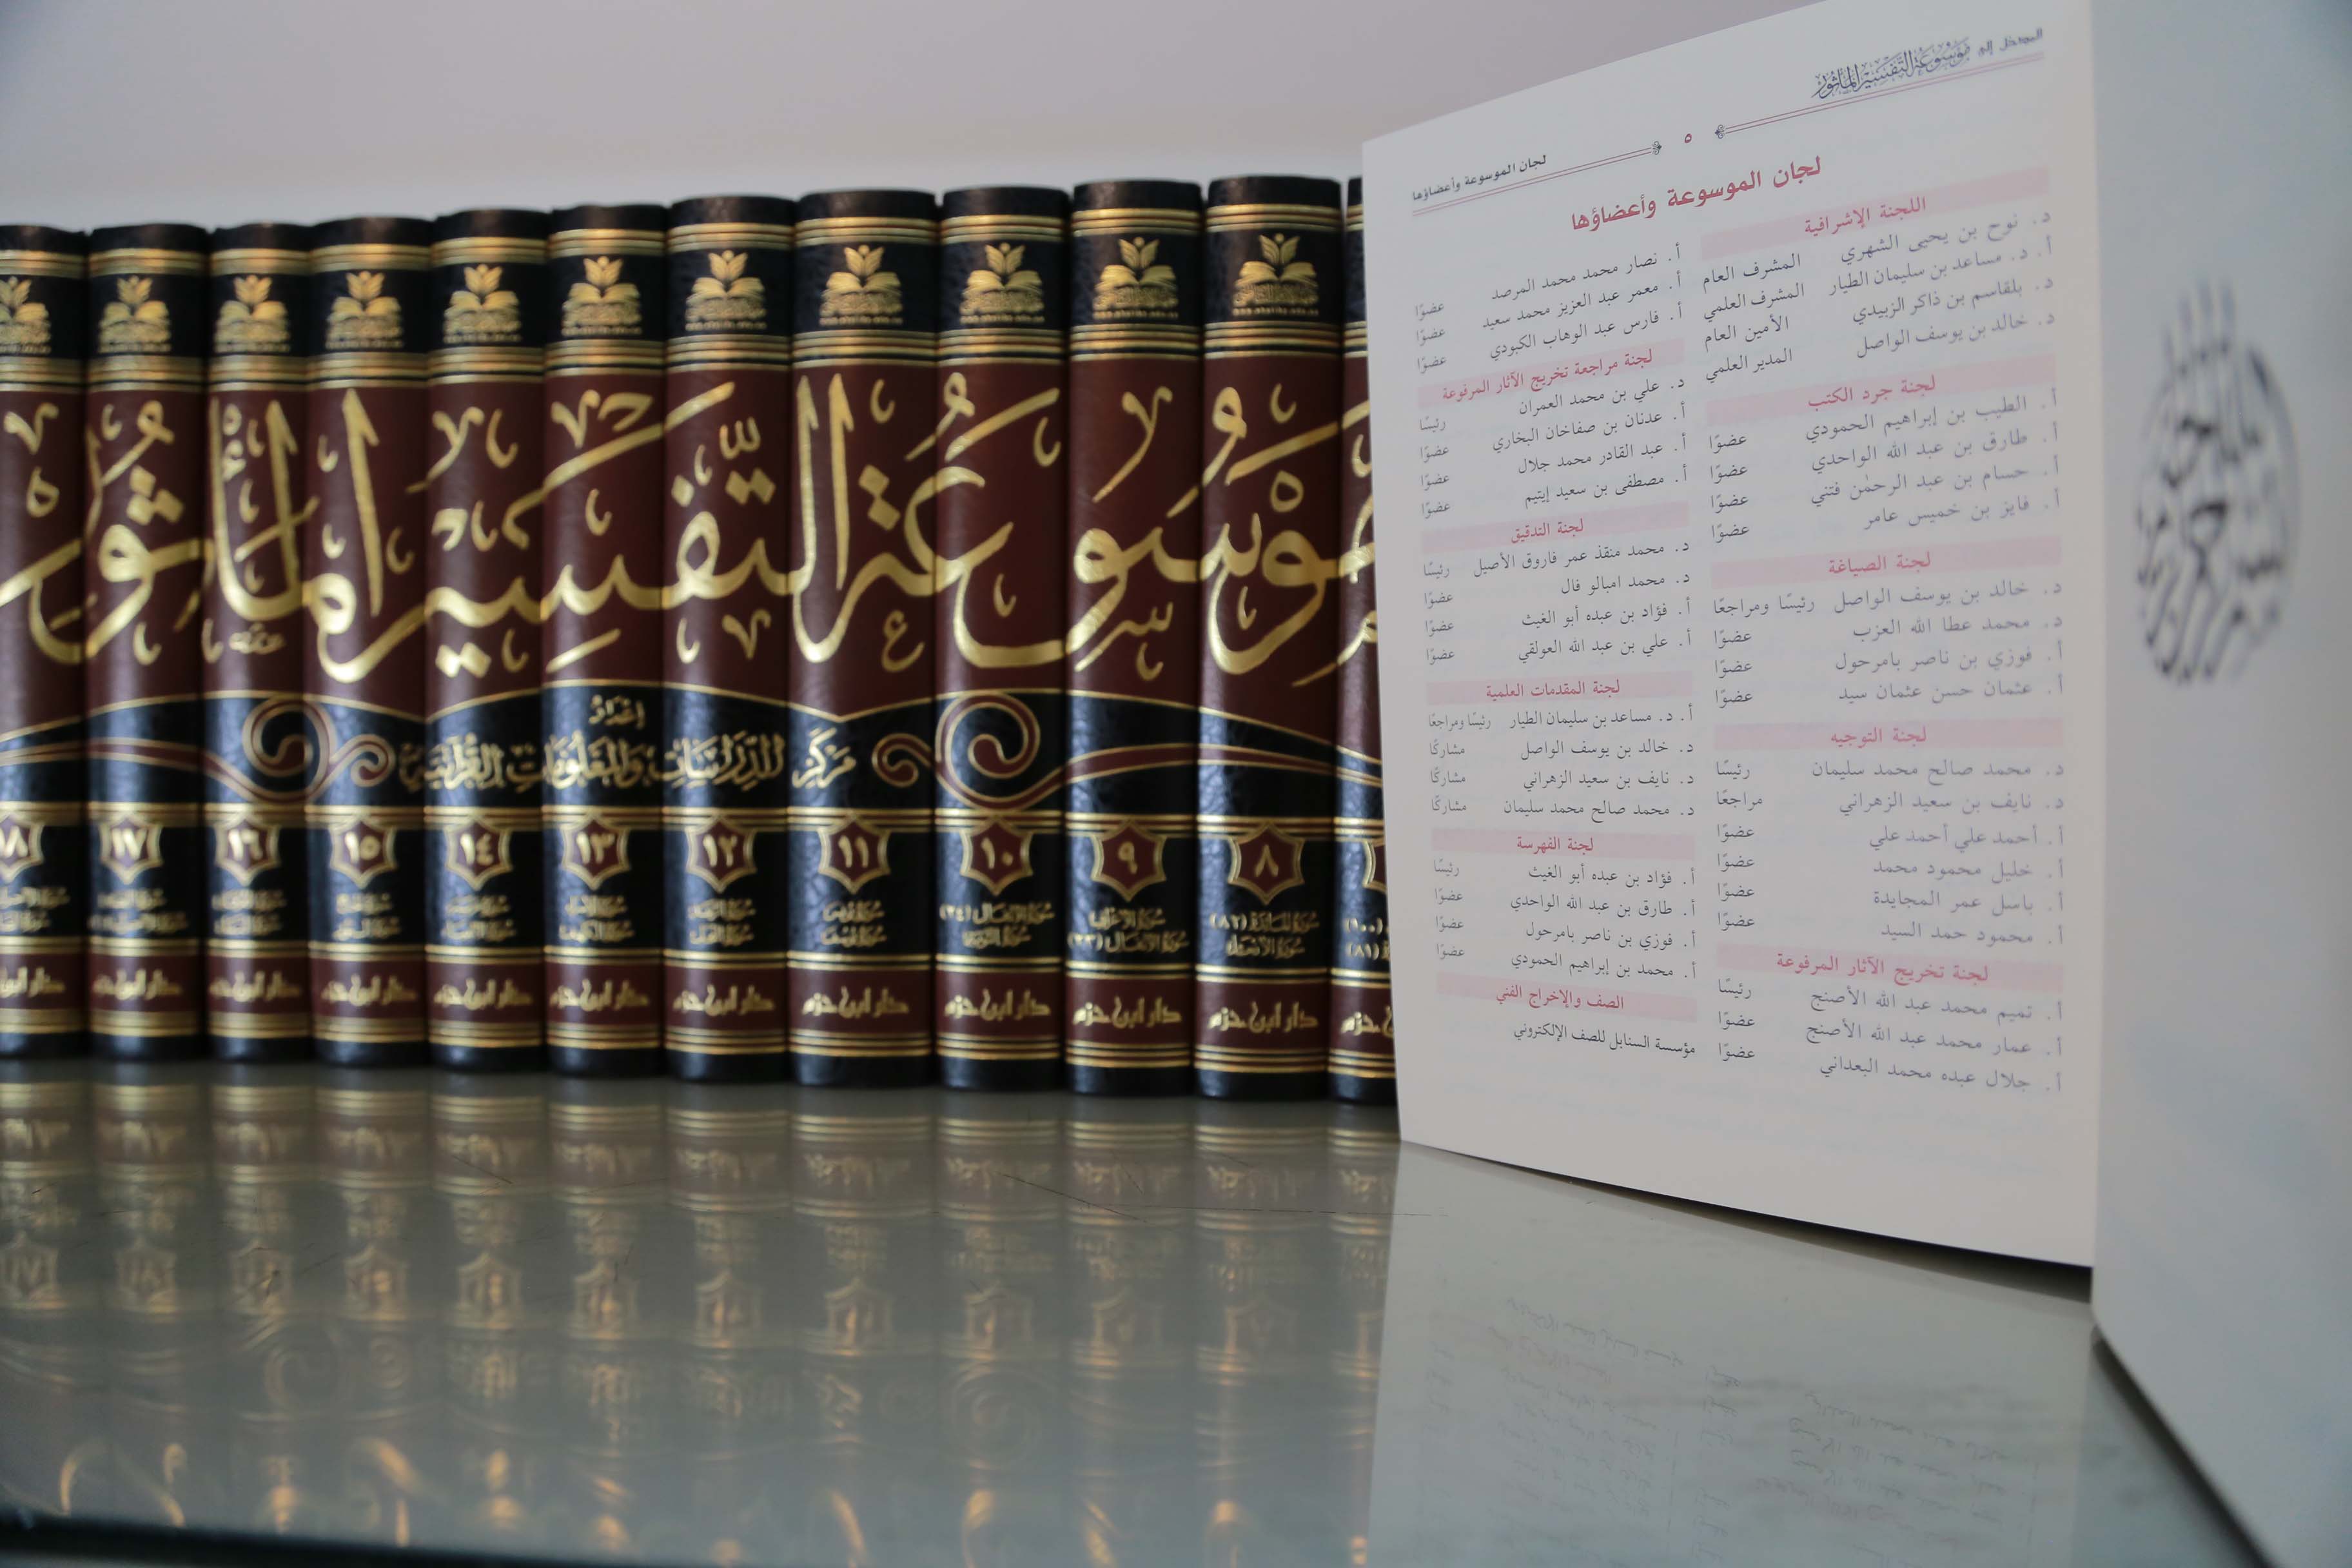 المدخل إلى موسوعة التفسير المأثور
٥
لجان الموسوعة وأعضاؤها
لجان الموسوعة وأعضاؤها
اللجنة الإشرافية
د. نوح بن يحيى الشهري المشرف العام
أ. د. مساعد بن سليمان الطيار المشرف العلمي
د. بلقاسم بن ذاكر الزبيدي الأمين العام
د. خالد بن يوسف الواصل المدير العلمي
لجنة جرد الكتب
أ. الطيب بن إبراهيم الحمودي عضوًا
أ. طارق بن عبد الله الواحدي عضوًا
أ. حسام بن عبد الرحمٰن فتني عضوًا
أ. فايز بن خميس عامر عضوًا
لجنة الصياغة
د. خالد بن يوسف الواصل رئيسًا ومراجعًا
د. محمد عطا الله العزب عضوًا
أ. فوزي بن ناصر بامرحول عضوًا
أ. عثمان حسن عثمان سيد عضوًا
لجنة التوجيه
د. محمد صالح محمد سليمان رئيسًا
د. نايف بن سعيد الزهراني مراجعًا
أ. أحمد علي أحمد علي عضوًا
أ. خليل محمود محمد عضوًا
أ. باسل عمر المجايدة عضوًا
أ. محمود حمد السيد عضوًا
لجنة تخريج الآثار المرفوعة
أ. تميم محمد عبد الله الأصنج رئيسًا
أ. عمار محمد عبد الله الأصنج عضوًا
أ. جلال عبده محمد البعداني عضوًا
أ. نصار محمد محمد المرصد عضوًا
أ. معمر عبد العزيز محمد سعيد عضوًا
أ. فارس عبد الوهاب الكبودي عضوًا
لجنة مراجعة تخريج الآثار المرفوعة
د. علي بن محمد العمران رئيسًا
أ. عدنان بن صفاخان البخاري عضوًا
أ. عبد القادر محمد جلال عضوًا
أ. مصطفى بن سعيد إيتيم عضوًا
لجنة التدقيق
د. محمد منقذ عمر فاروق الأصيل رئيسًا
د. محمد امبالو فال عضوًا
أ. فؤاد بن عبده أبو الغيث عضوًا
أ. علي بن عبد الله العولقي عضوًا
لجنة المقدمات العلمية
أ. د. مساعد بن سليمان الطيار رئيسًا ومراجعًا
د. خالد بن يوسف الواصل مشاركًا
د. نايف بن سعيد الزهراني مشاركًا
د. محمد صالح محمد سليمان مشاركًا
لجنة الفهرسة
أ. فؤاد بن عبده أبو الغيث رئيسًا
أ. طارق بن عبد الله الواحدي عضوًا
أ. فوزي بن ناصر بامرحول عضوًا
أ. محمد بن إبراهيم الحمودي عضوًا
الصف والإخراج الفني
مؤسسة السنابل للصف الإلكتروني
موسوعة التفسير المأثور
إعداد
مركز الدراسات والمعلومات القرآنية
٨ ٩ ١٠ ١١ ١٢ ١٣ ١٤ ١٥ ١٦ ١٧ ١٨
سورة المائدة (٨٢)
سورة الأنعام
سورة الأعراف
سورة الأنفال (٣٣)
سورة الأنفال (٣٤)
سورة التوبة
سورة يونس
سورة يوسف
دار ابن حزم
دار ابن حزم
دار ابن حزم
دار ابن حزم
دار ابن حزم
دار ابن حزم
دار ابن حزم
دار ابن حزم
دار ابن حزم
دار ابن حزم